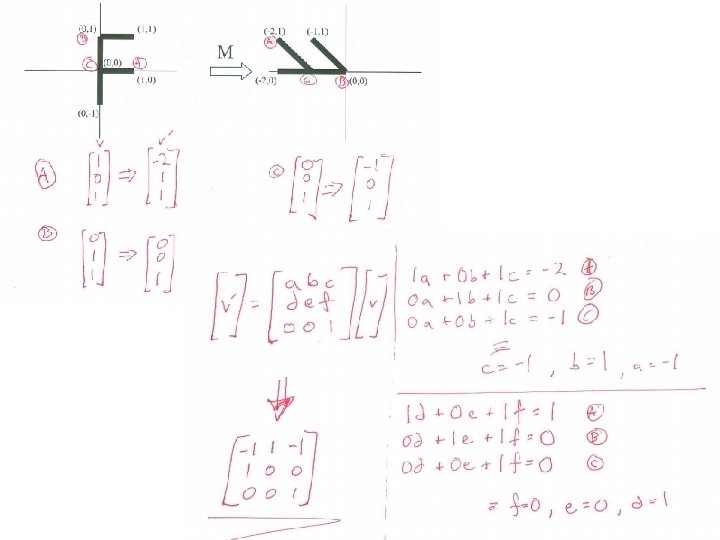 (0,1) (1,1)
B
C (0,0) A
(1,0)
(0,-1)
M
(-2,1) (-1,1)
A
(-2,0) C B (0,0)
v v'
A [1 0 1] ⇒ [-2 1 1]
C [0 0 1] ⇒ [-1 0 1]
B [0 1 1] ⇒ [0 0 1]
[v'] = [a b c
d e f
0 0 1] [v]
1a + 0b + 1c = -2 A
0a + 1b + 1c = 0 B
0a + 0b + 1c = -1 C
= c = -1 , b = 1 , a = -1
⇓
[-1 1 -1
1 0 0
0 0 1]
1d + 0e + 1f = 1 A
0d + 1e + 1f = 0 B
0d + 0e + 1f = 0 C
= f=0 , e=0 , d=1